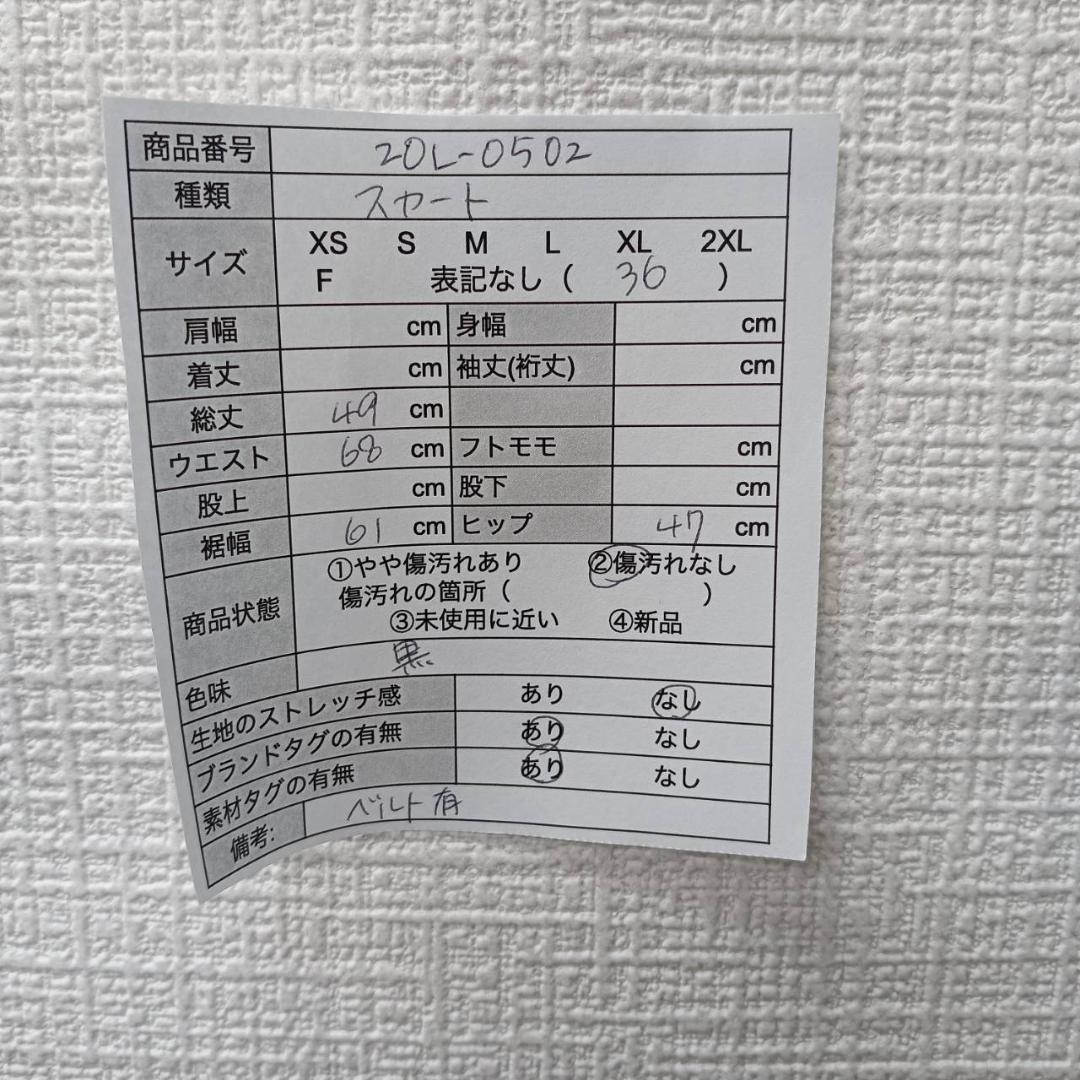 商品番号 20L-0502
種類 スカート
サイズ XS S M L XL 2XL
F 表記なし ( 36 )
肩幅 cm 身幅 cm
着丈 cm 袖丈(裄丈) cm
総丈 49 cm
ウエスト 68 cm フトモモ cm
股上 cm 股下 cm
裾幅 61 cm ヒップ 47 cm
商品状態 ①やや傷汚れあり ②傷汚れなし
傷汚れの箇所 ( )
③未使用に近い ④新品
色味 黒
生地のストレッチ感 あり なし
ブランドタグの有無 あり なし
素材タグの有無 あり なし
備考: ベルト有